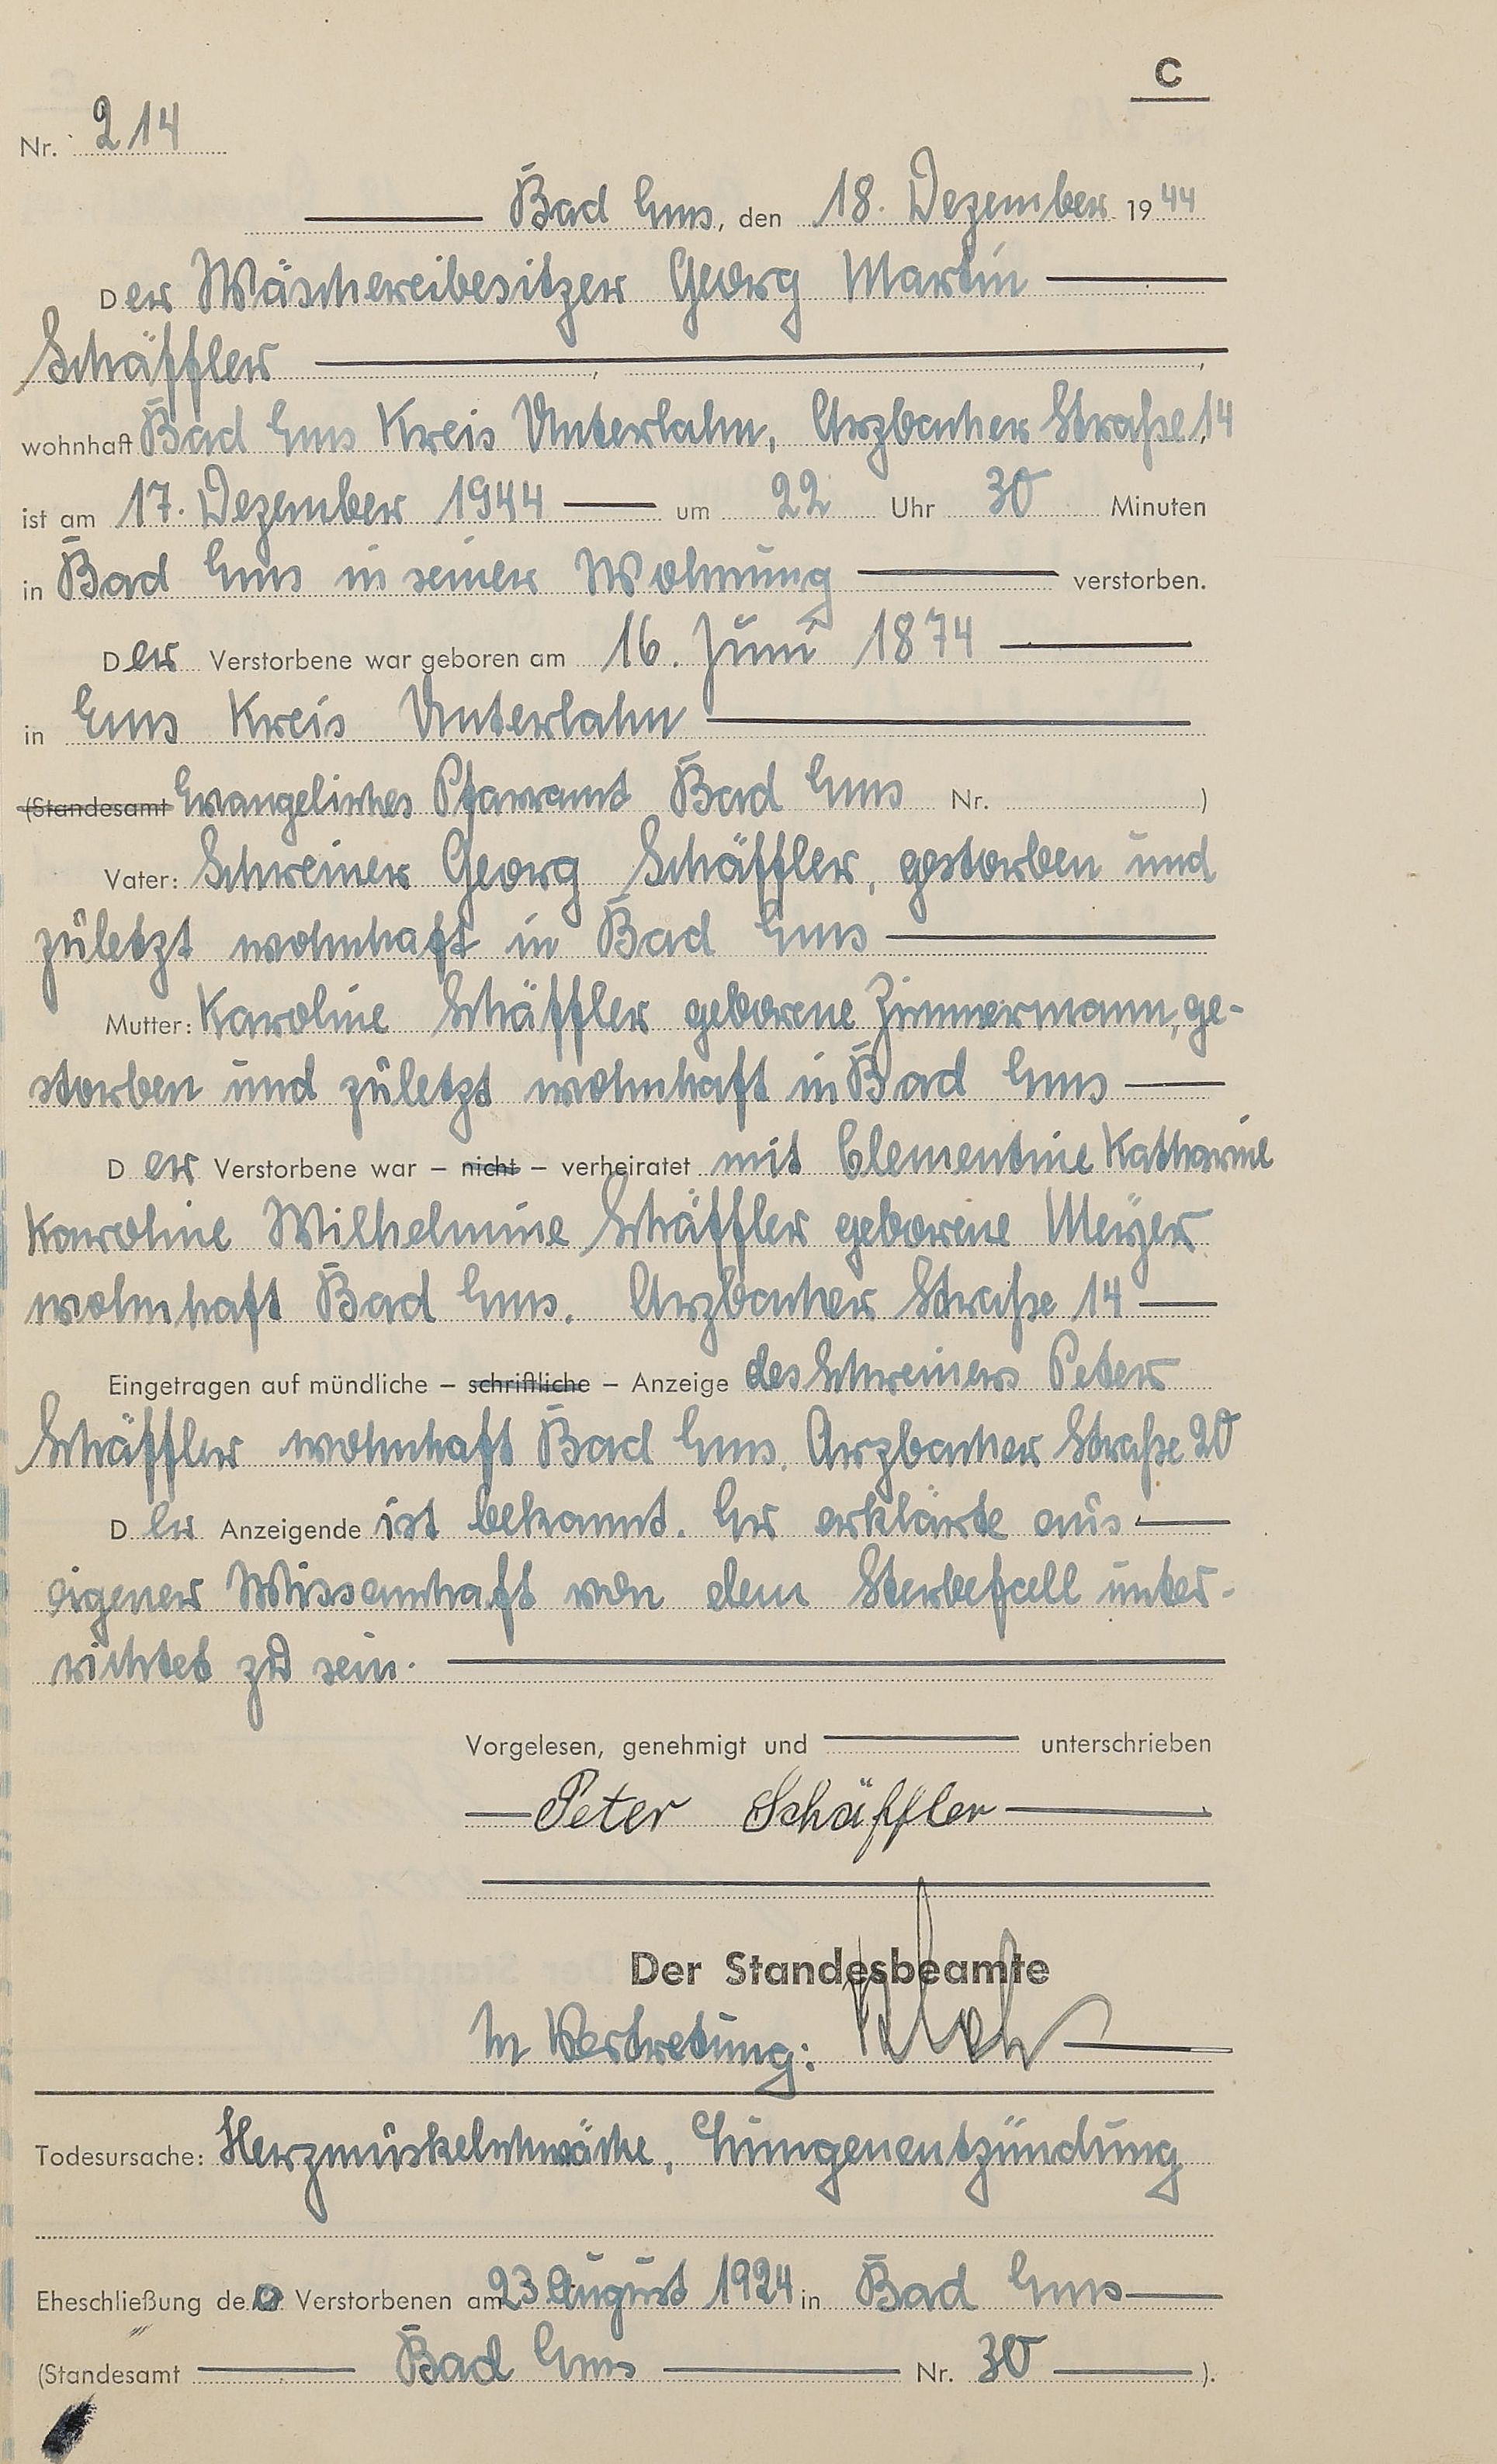 C
Nr. 214
Bad Ems, den 18. Dezember 1944
Der Wäschereibesitzer Georg Martin
Schäffler
wohnhaft Bad Ems Kreis Unterlahn, Arzbacher Straße 14
ist am 17. Dezember 1944 um 22 Uhr 30 Minuten
in Bad Ems in seiner Wohnung verstorben.
Der Verstorbene war geboren am 16. Juni 1874
in Ems Kreis Unterlahn
(Standesamt Evangelisches Pfarramt Bad Ems Nr. )
Vater: Schreiner Georg Schäffler, gestorben und
zuletzt wohnhaft in Bad Ems
Mutter: Karoline Schäffler geborene Zimmermann, ge-
storben und zuletzt wohnhaft in Bad Ems
Der Verstorbene war – nicht – verheiratet mit Clementine Katharine
Karoline Wilhelmine Schäffler geborene Meyer
wohnhaft Bad Ems. Arzbacher Straße 14
Eingetragen auf mündliche – schriftliche – Anzeige des Schreiners Peter
Schäffler wohnhaft Bad Ems. Arzbacher Straße 20
Der Anzeigende ist bekannt. Er erklärte aus
eigener Wissenschaft von dem Sterbefall unter-
richtet zu sein.
Vorgelesen, genehmigt und unterschrieben
Peter Schäffler
Der Standesbeamte
In Vertretung:
Todesursache: Herzmuskelschwäche, Lungenentzündung
Eheschließung des Verstorbenen am 23 August 1924 in Bad Ems
(Standesamt Bad Ems Nr. 30 ).